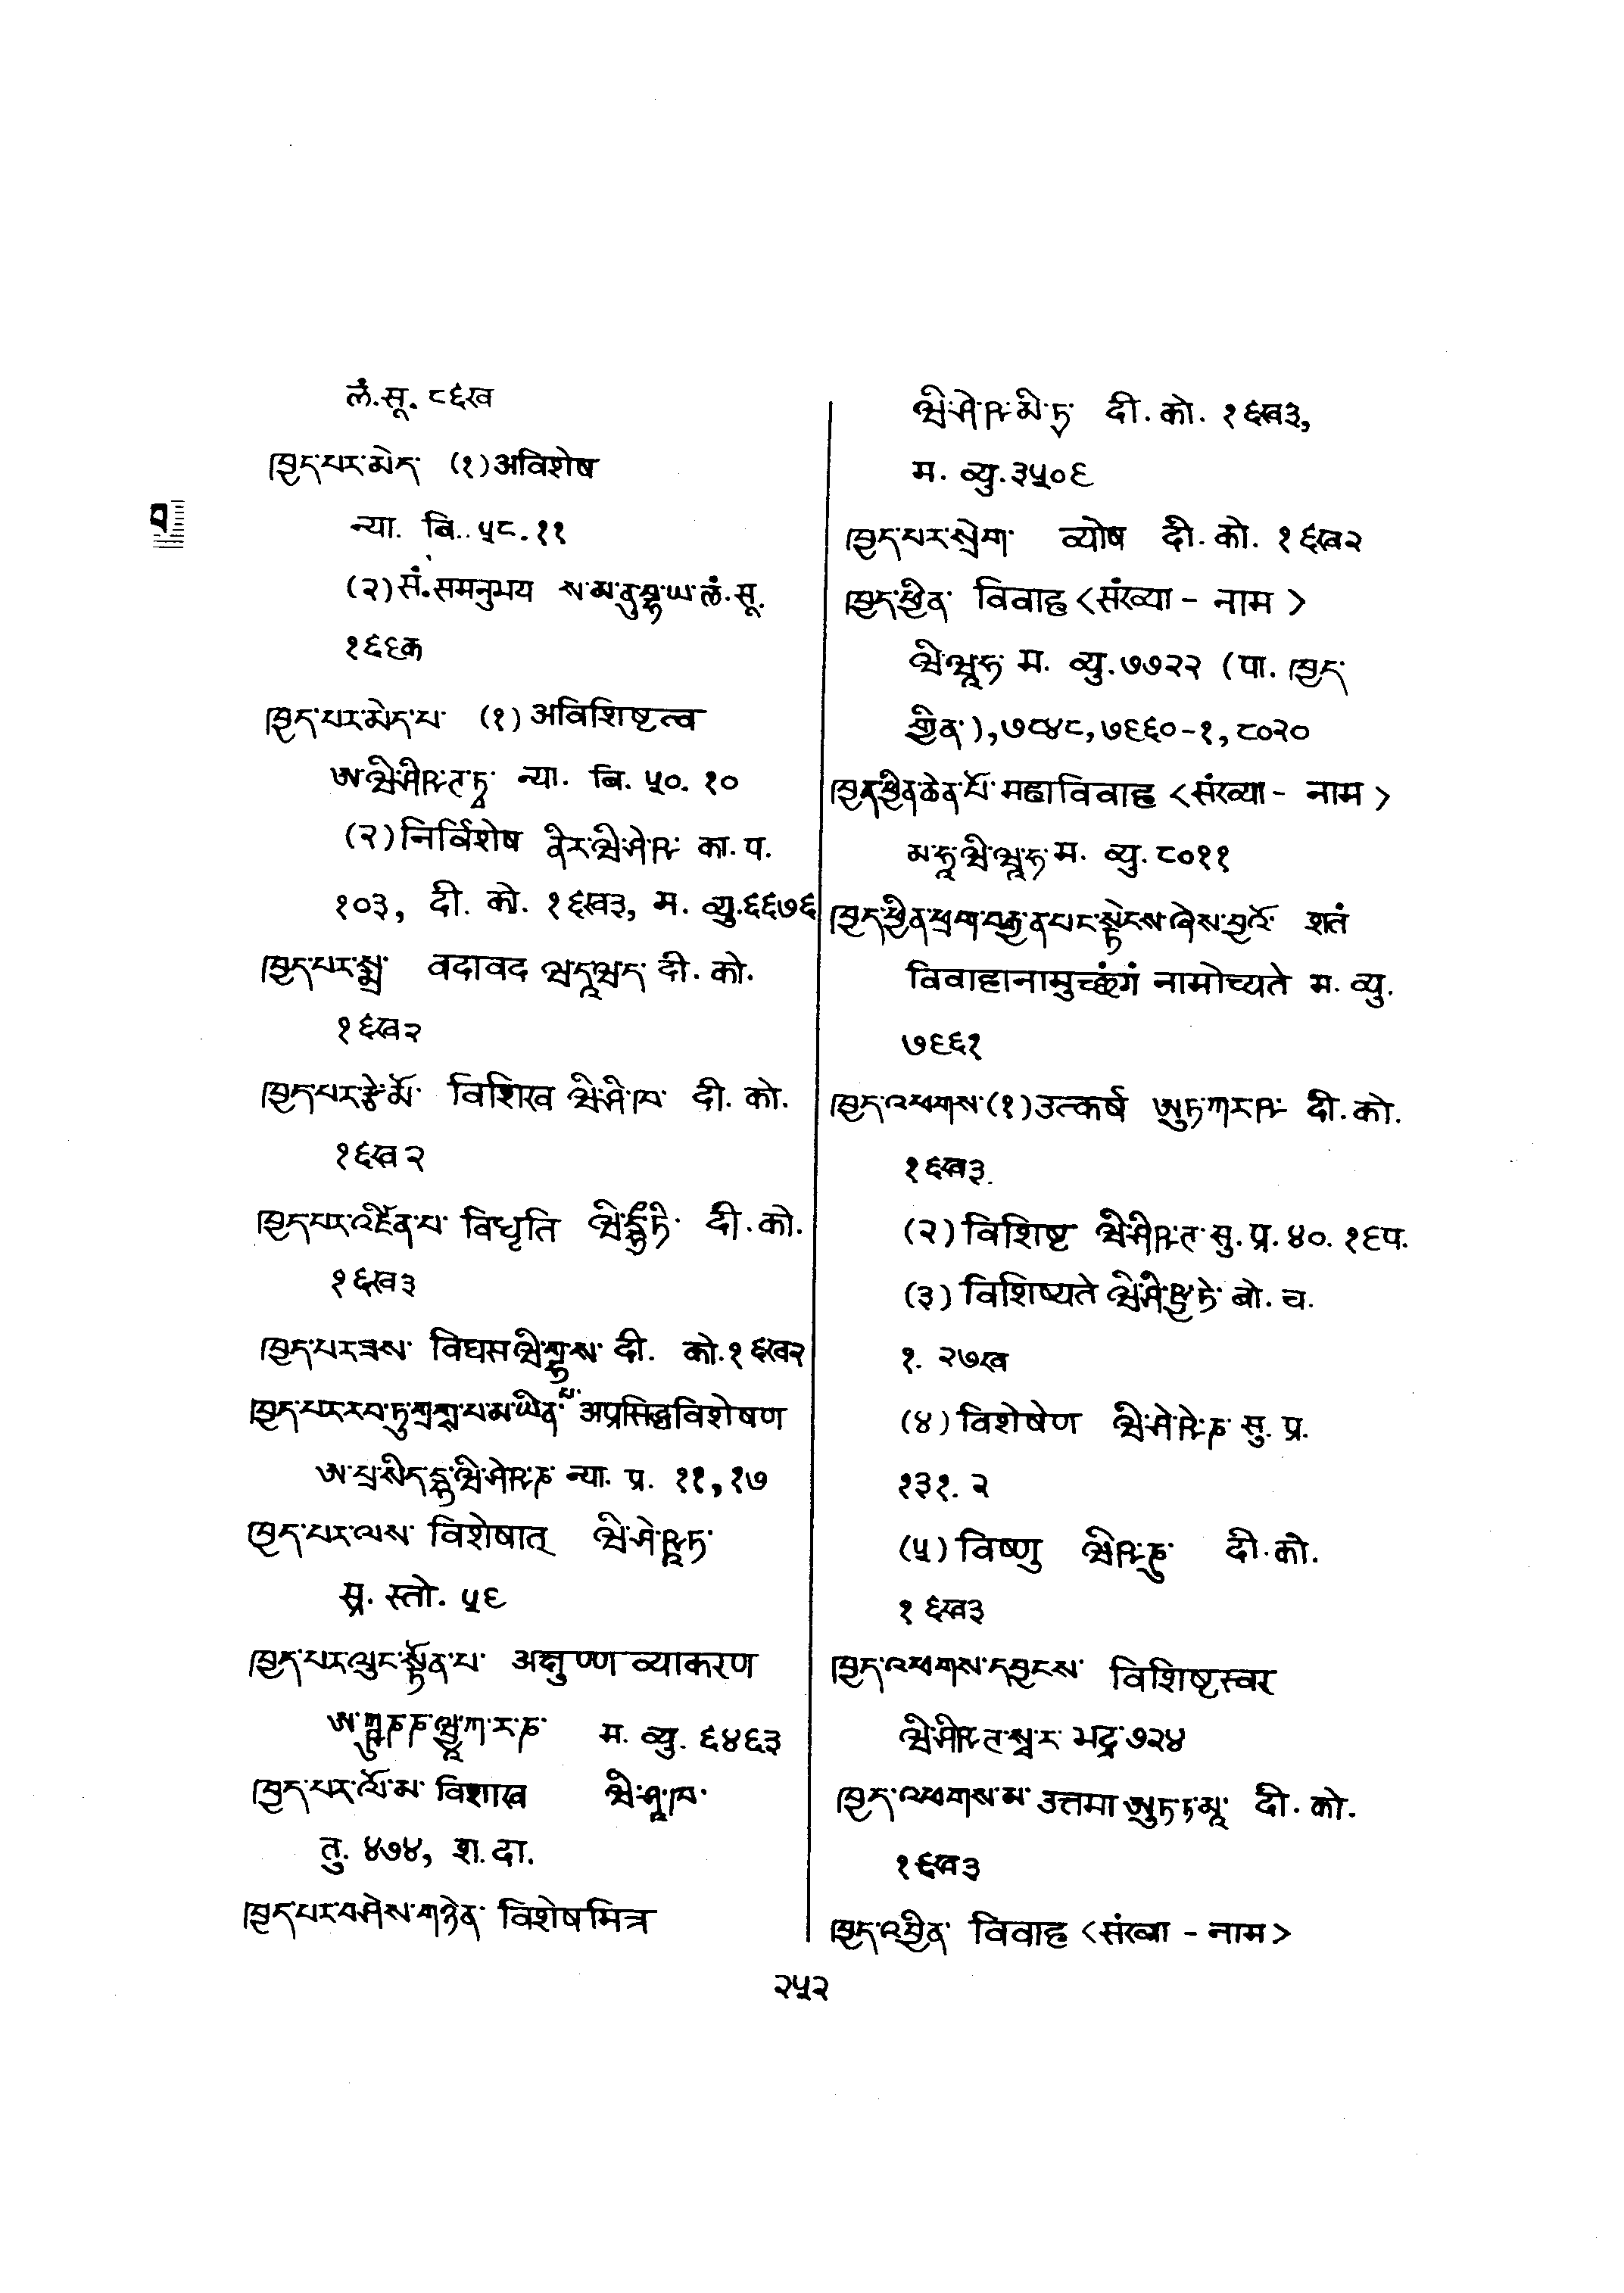 लं.सू. ८६ख
ཁྱད་པར་མེད་ (१)अविशेष
न्या. बि. ५८.११
(२)सं.समनुभय ས་མ་ནུ་བྷ་ཡ་ लं.सू.
१६६क
ཁྱད་པར་མེད་པ་ (१) अविशिष्टत्व
ཨ་ཝི་ཤིཥ་ཊ་ཏྭ་ न्या. बि. ५०. १०
(२)निर्विशेष ནིར་ཝི་ཤེ་ཥ་ का. प.
१०३, दी. को. १६ख३, म. व्यु.६६७६
ཁྱད་པར་སྨྲ་ वदावद ཝ་དཱ་ཝ་ད་ दी. को.
१६ख२
ཁྱད་པར་རྩེ་མོ་ विशिख ཝི་ཤི་ཁ་ दी. को.
१६ख२
ཁྱད་པར་འཛིན་པ་ विधृति ཝི་དྷྲྀ་ཏི་ दी. को.
१६ख३
ཁྱད་པར་ཟས་ विघस ཝི་གྷ་ས་ दी. को.१६ख२
ཁྱད་པར་རབ་ཏུ་གྲགས་པ་མ་ཡིན་པ་ अप्रसिद्धविशेषण
ཨ་པྲ་སིད་དྷ་ཝི་ཤེཥ་ཎ་ न्या. प्र. ११,१७
ཁྱད་པར་ལས་ विशेषात् ཝི་ཤེ་ཥཱཏ་
प्र. स्तो. ५६
ཁྱད་པར་ལུང་སྟོན་པ་ अक्षुण्ण व्याकरण
ཨ་ཀྵུཎ་ཎ་ཝྱཱ་ཀ་ར་ཎ་ म. व्यु. ६४६३
ཁྱད་པར་ལོ་མ་ विशाख ཝི་ཤཱ་ཁ་
तु. ४७४, श. दा.
ཁྱད་པར་བཤེས་གཉེན་ विशेषमित्र
ཝི་ཤེ་ཥ་མི་ཏྲ་ दी. को. १६ख३,
म. व्यु.३५०६
ཁྱད་པར་སྲེག་ व्योष दी. को. १६ख२
ཁྱད་ཕྱིན་ विवाह <संख्या - नाम >
ཝི་ཝཱ་ཧ་ म. व्यु.७७२२ (पा. ཁྱད་
ཀྱིན་),७८४८,७९६०-१,८०२०
ཁྱད་ཕྱིན་ཆེན་པོ་ महाविवाह <संख्या - नाम >
མ་ཧཱ་ཝི་ཝཱ་ཧ་ म. व्यु. ८०११
ཁྱད་ཕྱིན་ཕྲག་བརྒྱ་ན་པང་སྟེངས་ཞེས་བྱའོ་ शतं
विवाहानामुच्छंगं नामोच्यते म. व्यु.
७९६१
ཁྱད་འཕགས་(१)उत्कर्ष ཨུཏ་ཀར་ཥ་ दी. को.
१६ख३.
(२)विशिष्ट ཝི་ཤིཥ་ཊ་ सु. प्र. ४०. १९प.
(३)विशिष्यते ཝི་ཤི་ཥྱ་ཏེ་ बो. च.
१. २७ख
(४)विशेषेण ཝི་ཤེ་ཥེ་ཎ་ सु. प्र.
१३१. २
(५)विष्णु ཝིཥ་ཎུ་ दी. को.
१६ख३
ཁྱད་འཕགས་དབྱངས་ विशिष्टस्वर
ཝི་ཤིཥ་ཊ་སྭ་ར་ भद्र ७२४
ཁྱད་འཕགས་མ་ उत्तमा ཨུཏ་ཏ་མཱ་ दी. को.
१६ख३
ཁྱད་འབྱིན་ विवाह <संख्या - नाम>
२५२